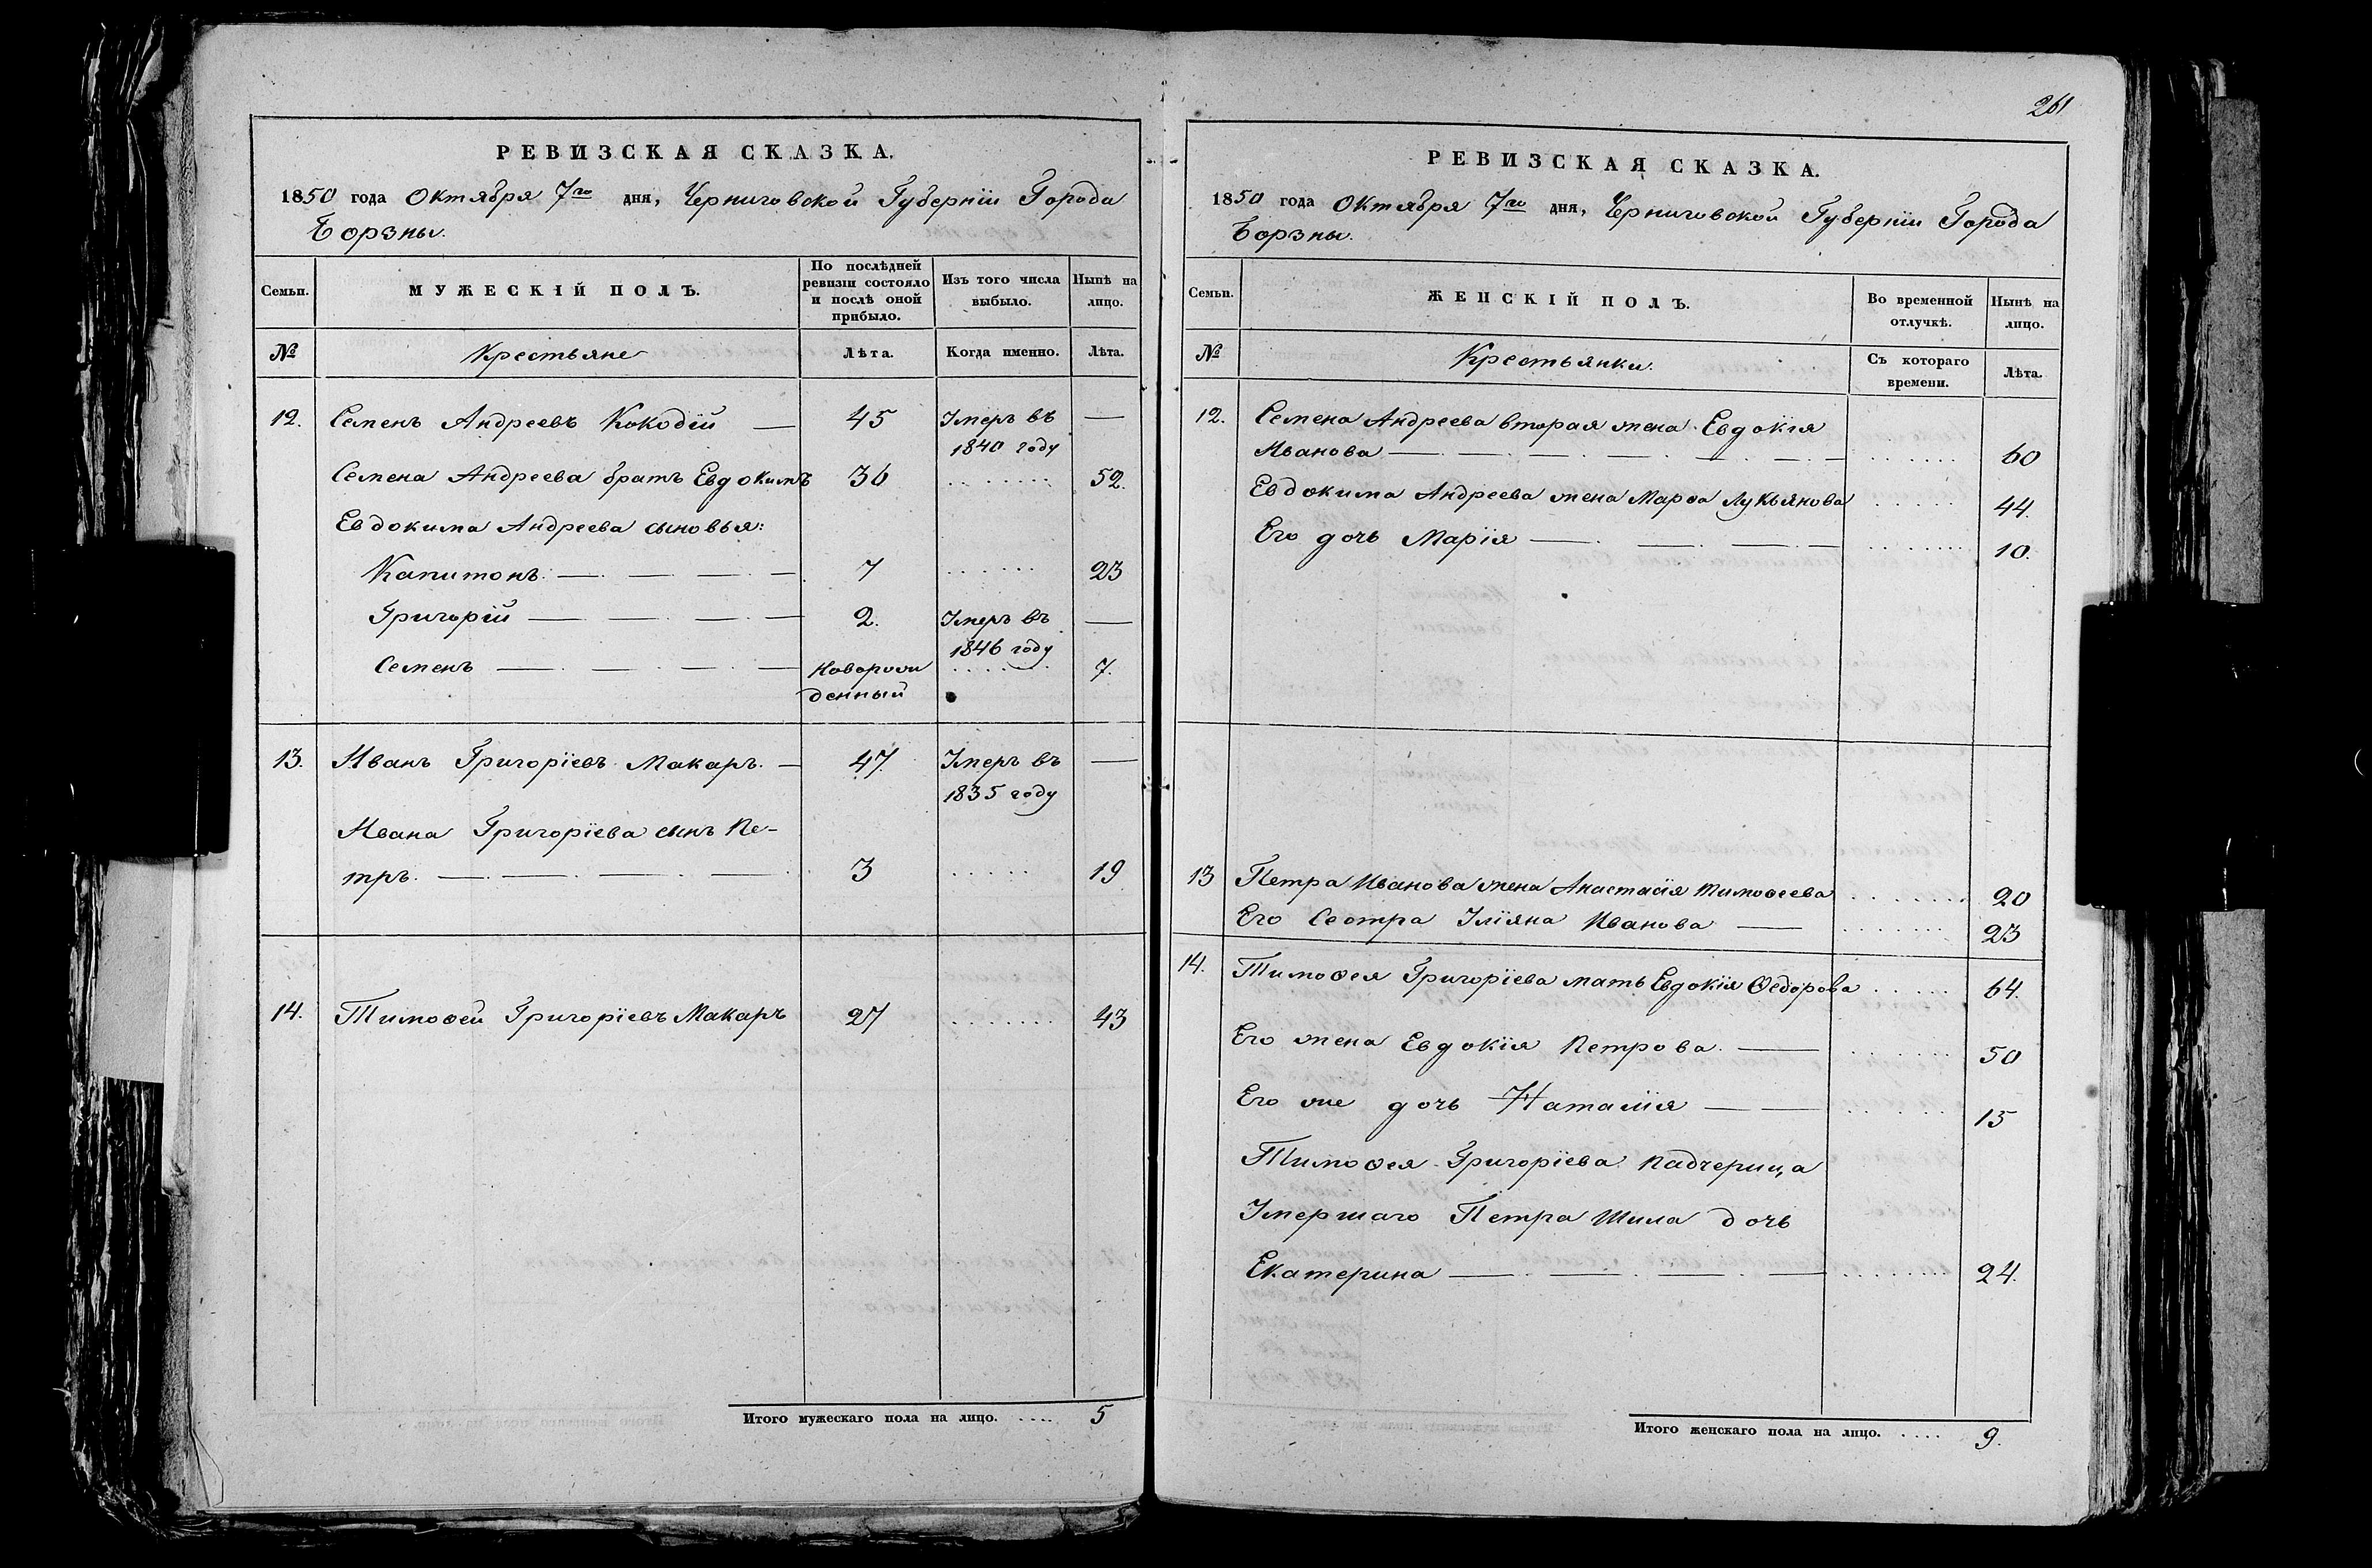 РЕВИЗСКАЯ СКАЗКА.
1850 года Октября 7го дня, Черниговской Губерніи Города
Борзны.
Семьи.
МУЖЕСКІЙ ПОЛЪ.
По послѣдней
ревизіи состояло
и послѣ оной
прибыло.
Изъ того числа
выбыло.
Нынѣ на
лицо.
№
Крестьяне
Лѣта.
Когда именно.
Лѣта.
12. Семенъ Андреевъ Кокодій — 45 Умеръ въ —
1840 году
Семена Андреева братъ Евдокимъ 36 ....... 52.
Евдокима Андреева сыновья:
Капитонъ. — — — — 7 ...... 23
Григорій — — — — 2. Умеръ въ —
1846 году
Семенъ — — — — Новорож ....... 7.
денный
13. Иванъ Григоріевъ Макаръ. — 47. Умеръ въ —
1835 году
Ивана Григоріева сынъ Пе-
тръ. — — — — 3 ..... 19
14. Тимофей Григоріевъ Макаръ 27 ....... 43
Итого мужескаго пола на лицо. .... 5
261
РЕВИЗСКАЯ СКАЗКА.
1850 года Октября 7го дня, Черниговской Губерніи Города
Борзны.
Семьи.
ЖЕНСКІЙ ПОЛЪ.
Во временной
отлучкѣ.
Нынѣ на
лицо.
№
Крестьянки.
Съ котораго
времени.
Лѣта.
12. Семена Андреева вторая жена Евдокія
Иванова — — — — — — ...... 60
Евдокима Андреева жена Марѳа Лукьянова ..... 44.
Его дочь Марія — — — ....... 10.
13 Петра Иванова жена Анастасія Тимоѳеева ....... 20
Его Сестра Уліяна Иванова — ....... 23
14. Тимоѳея Григоріева мать Евдокія Ѳедорова ..... 64.
Его жена Евдокія Петрова. — ...... 50
Его же дочь Наталія — — ..... 15
Тимоѳея Григоріева падчерица
Умершаго Петра Шила дочь
Екатерина — — — — ....... 24.
Итого женскаго пола на лицо. .... 9.